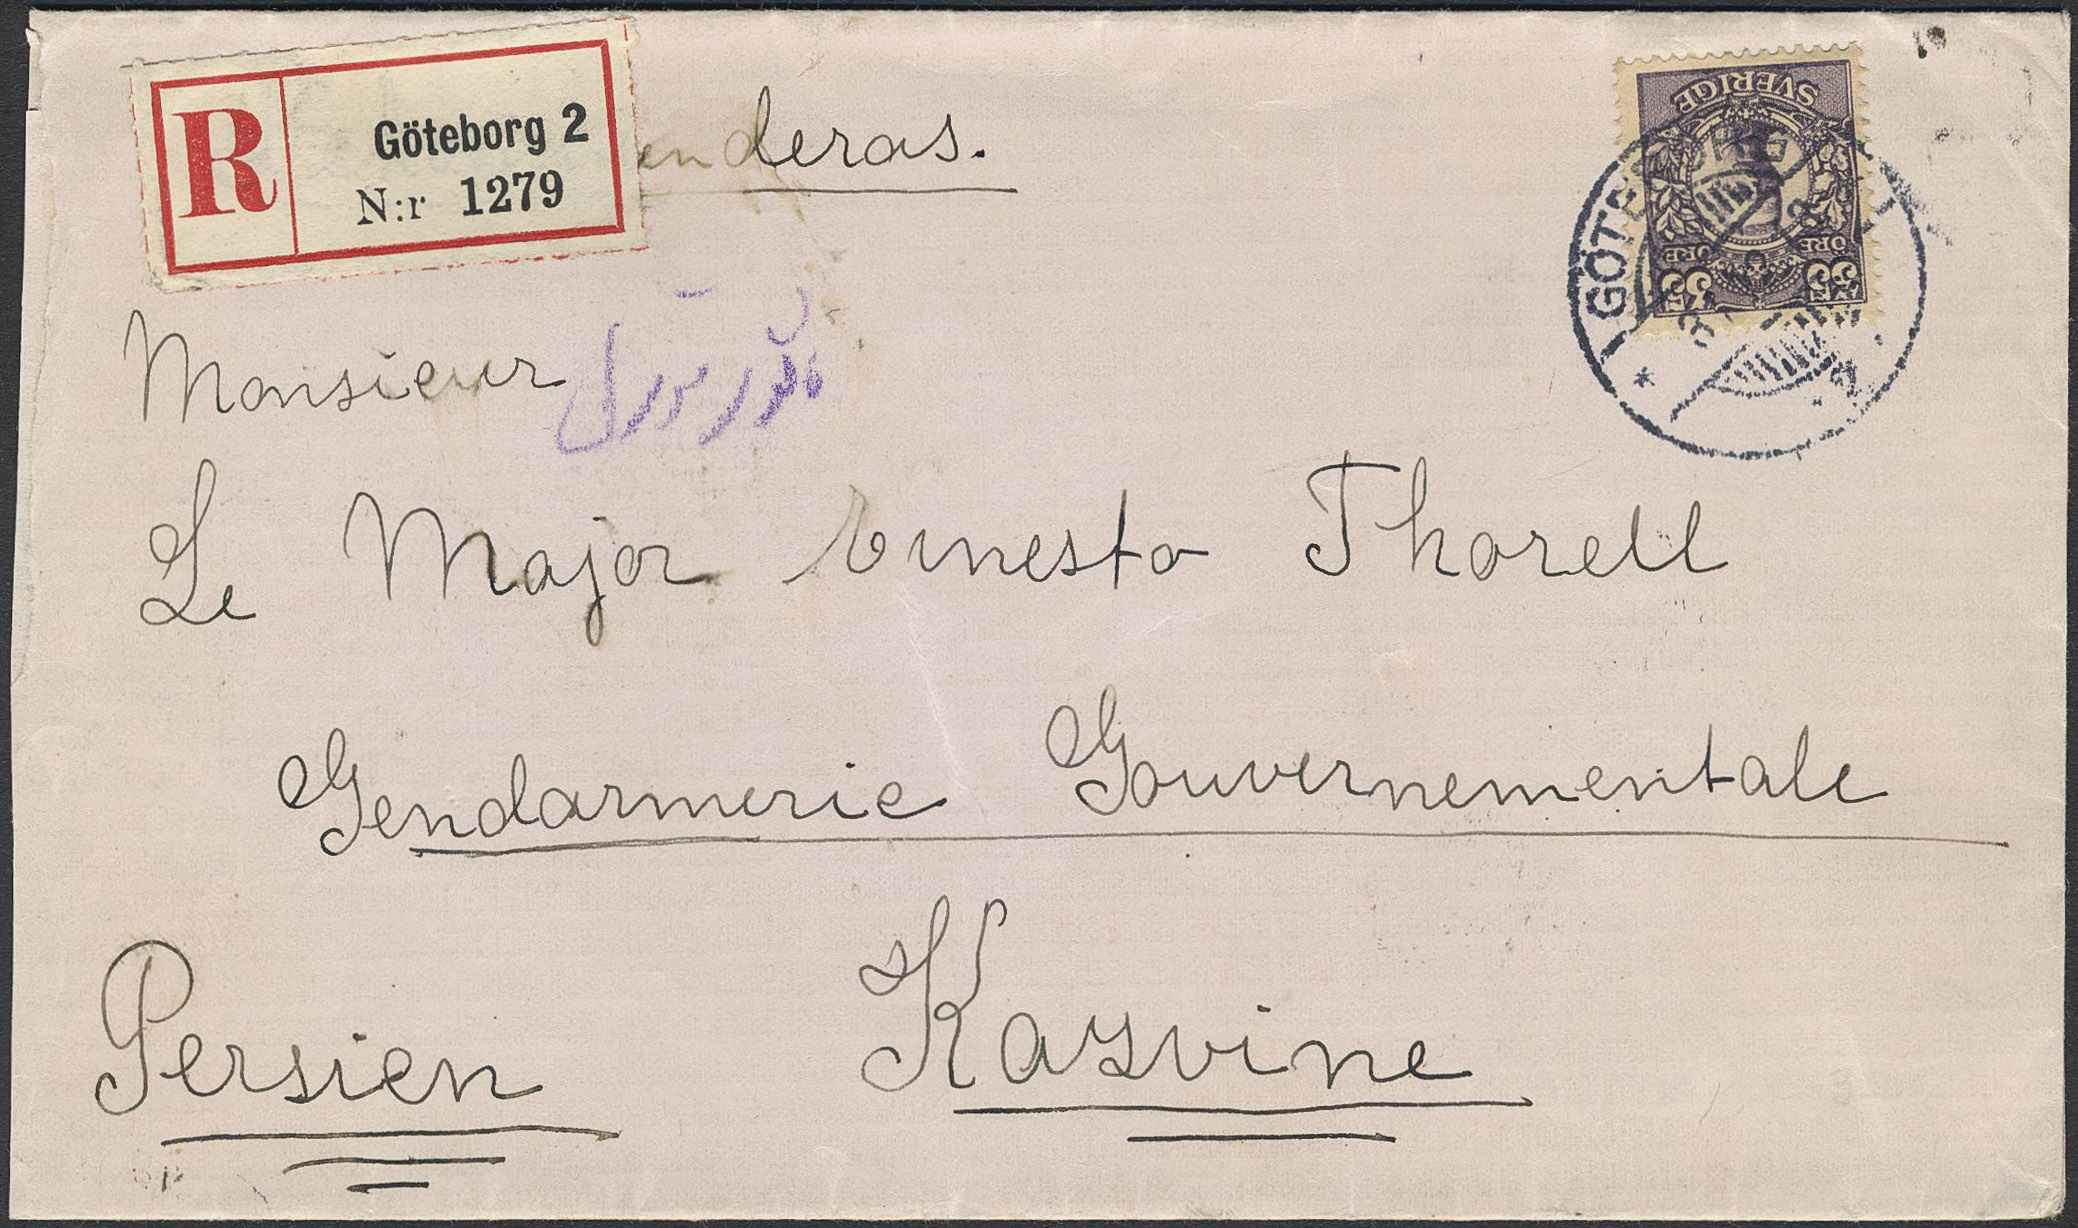 R Göteborg 2
N:r 1279
enderas.
SVERIGE
35 ÖRE ÖRE 35
GÖTEBORG
Monsieur
Le Major Ernesto Thorell
Gendarmerie Gouvernementale
Persien Kasvine